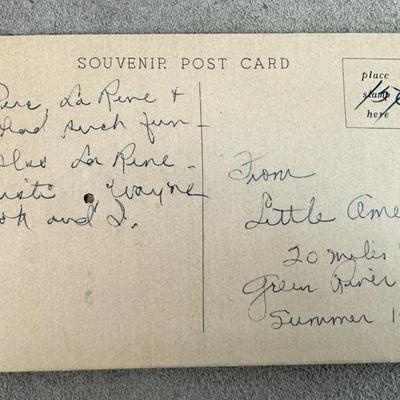 SOUVENIR POST CARD
place
stamp
here
La Rene &
had such fun -
also La Rene -
Wayne
and I.
From
Little Ame
20 miles
Green River
Summer 1